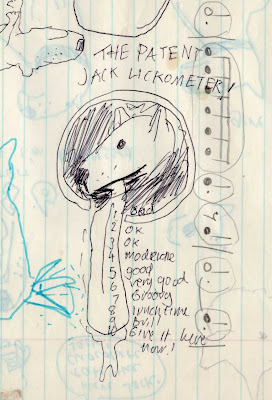 THE PATENT
JACK LICKOMETER!
1 bad
2 OK
3 OK
4 moderate
5 good
6 very good
7 Groovy
8 lunchtime
9 Brill
10 Give it here
now!